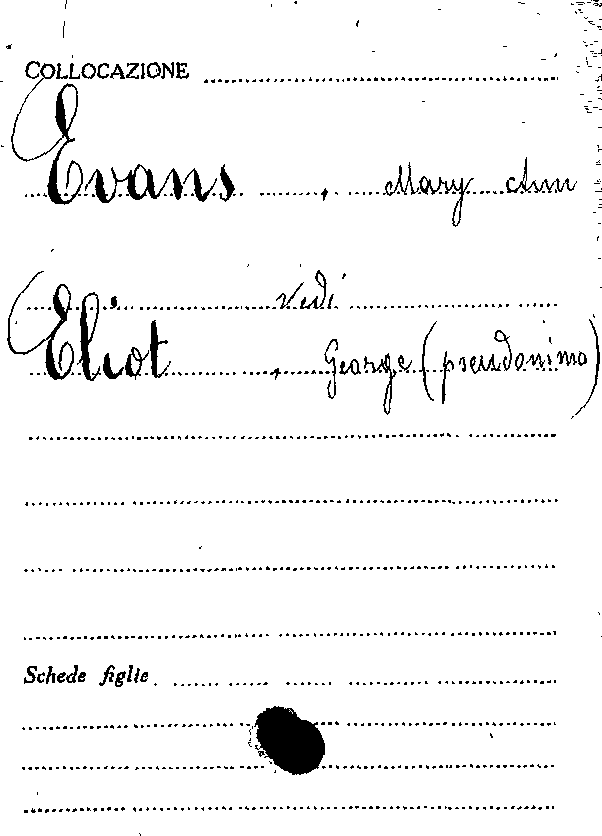 COLLOCAZIONE
Evans, Mary Ann
Vedi
Eliot, George (pseudonimo)
Schede figlie